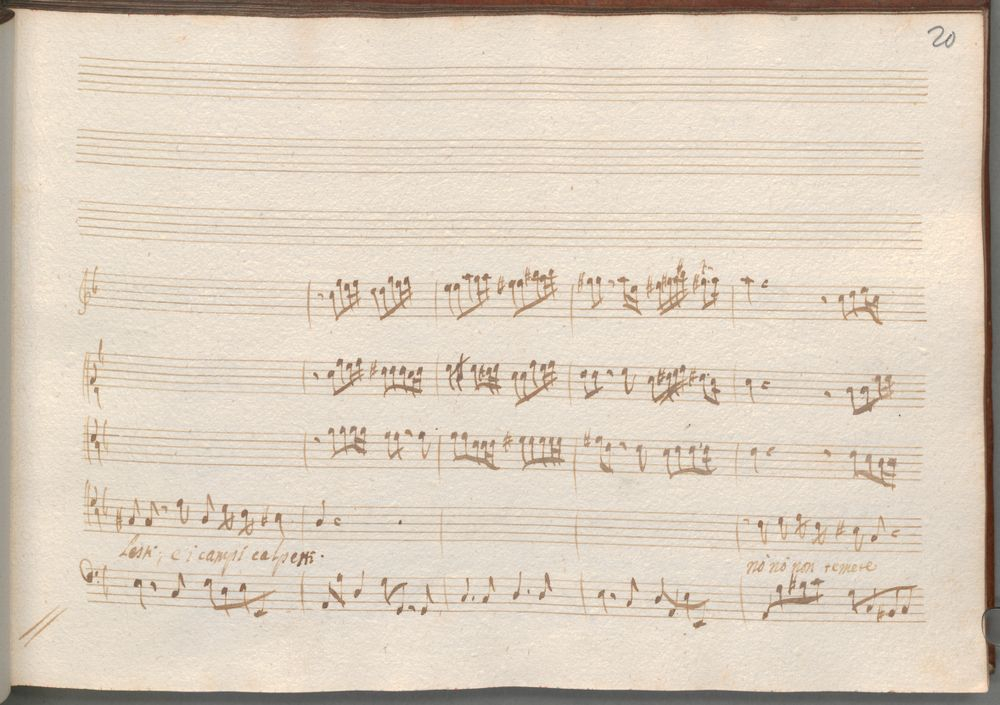 20
e i campi calpesti.
nò nò non temere